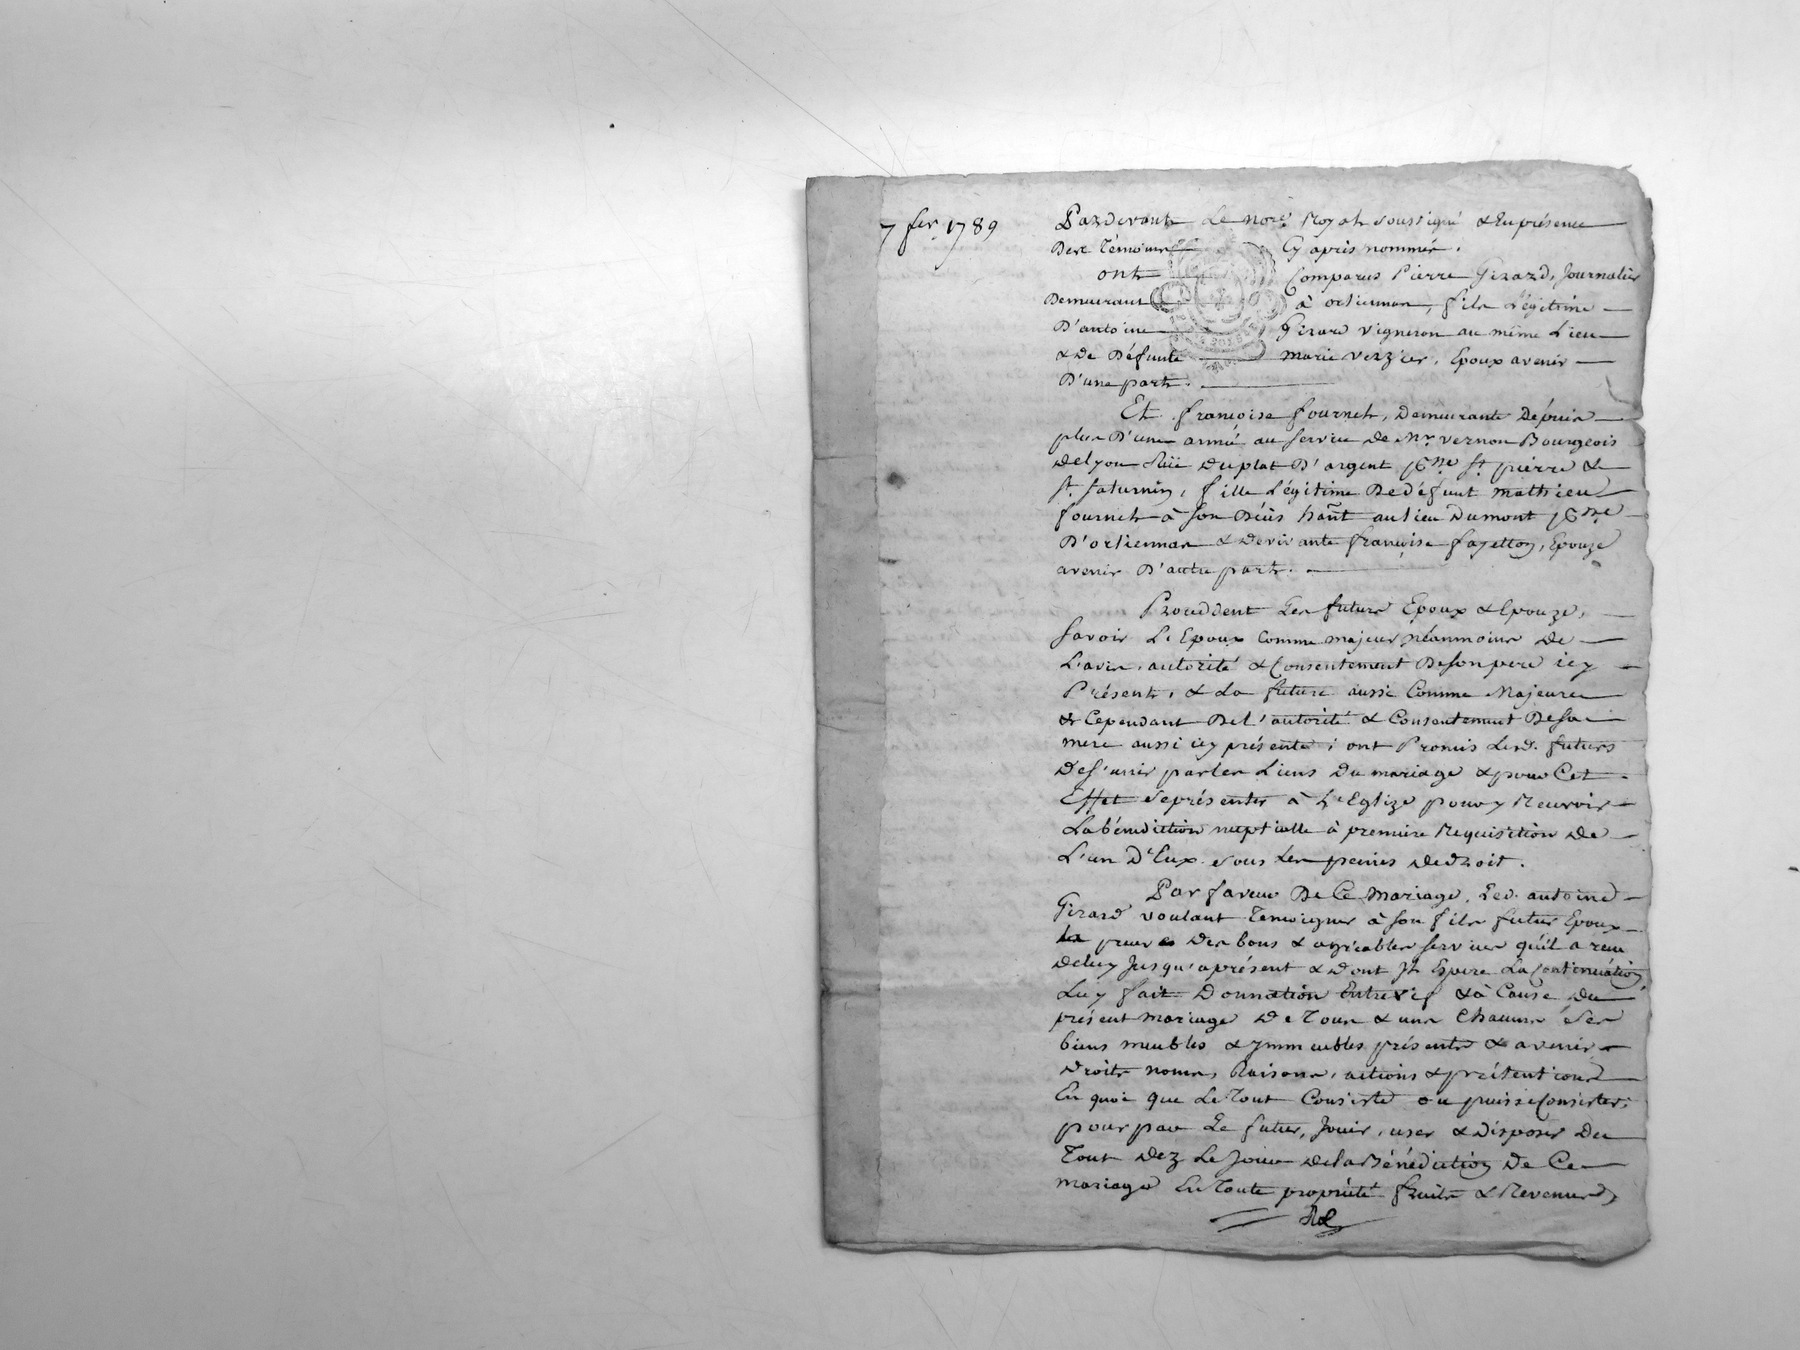 7 fer. 1789
Pardevant Le nore. Royal soussigné & En présence
Des Témoins Cy après nommés.
ont Comparus Pierre Girard, Journalier
Demeurant à orliennas, fils Légitime
D'antoine Girard vigneron au même Lieu
& De Défunte marie verzier, Epoux avenir
D'une part.
Et françoise fournel, Demeurante Dépuis
plus D'une année au service de Mr. vernon Bourgeois
de Lyon Rüe Duplat D'argent psse St. pierre &
St. Saturnin, fille Légitime De défunt mathieu
fournel à son Décès hañt au lieu Dumont psse
D'orliennas & De vivante françoise fayetton, Epouze
avenir D'autre part.
Procèddent Les futurs Epoux & Epouze,
savoir L'Epoux Comme majeur néanmoins De
L'avis, autorité & Consentement De son pere icy
Présent, & La future aussi Comme Majeure
& Cependant De L'autorité & Consentement De sa
mere aussi icy présente; ont Promis Lesd. futurs
De s'unir par les Liens Du mariage & pour Cet
Effet se présenter à L'Eglize pour y Recevoir
La bénédiction nuptialle à première Requisition De
L'un D'Eux sous les peines De droit.
Par faveur De Ce Mariage, Led. antoine
Girard voulant Temoigner à son fils futur Epoux
preuves Des bons & agréables services qu'il a reçu
de luy Jusqu'aprésent & dont Il Espere La Continuation,
Luy fait Donnation Entrevif & à Cause Du
présent Mariage De Tous & uns Chacuns ses
biens meubles & ymmeubles présents & avenir
Droits noms, Raisons, actions & prétentions
En quoi que Le Tout Consiste ou puisse Consister;
pour par Le futur, Jouir, user & Disposer Du
Tout Dez Le Jour de la Bénédiction De Ce
mariage En Toute propriété fruits & Revenus,